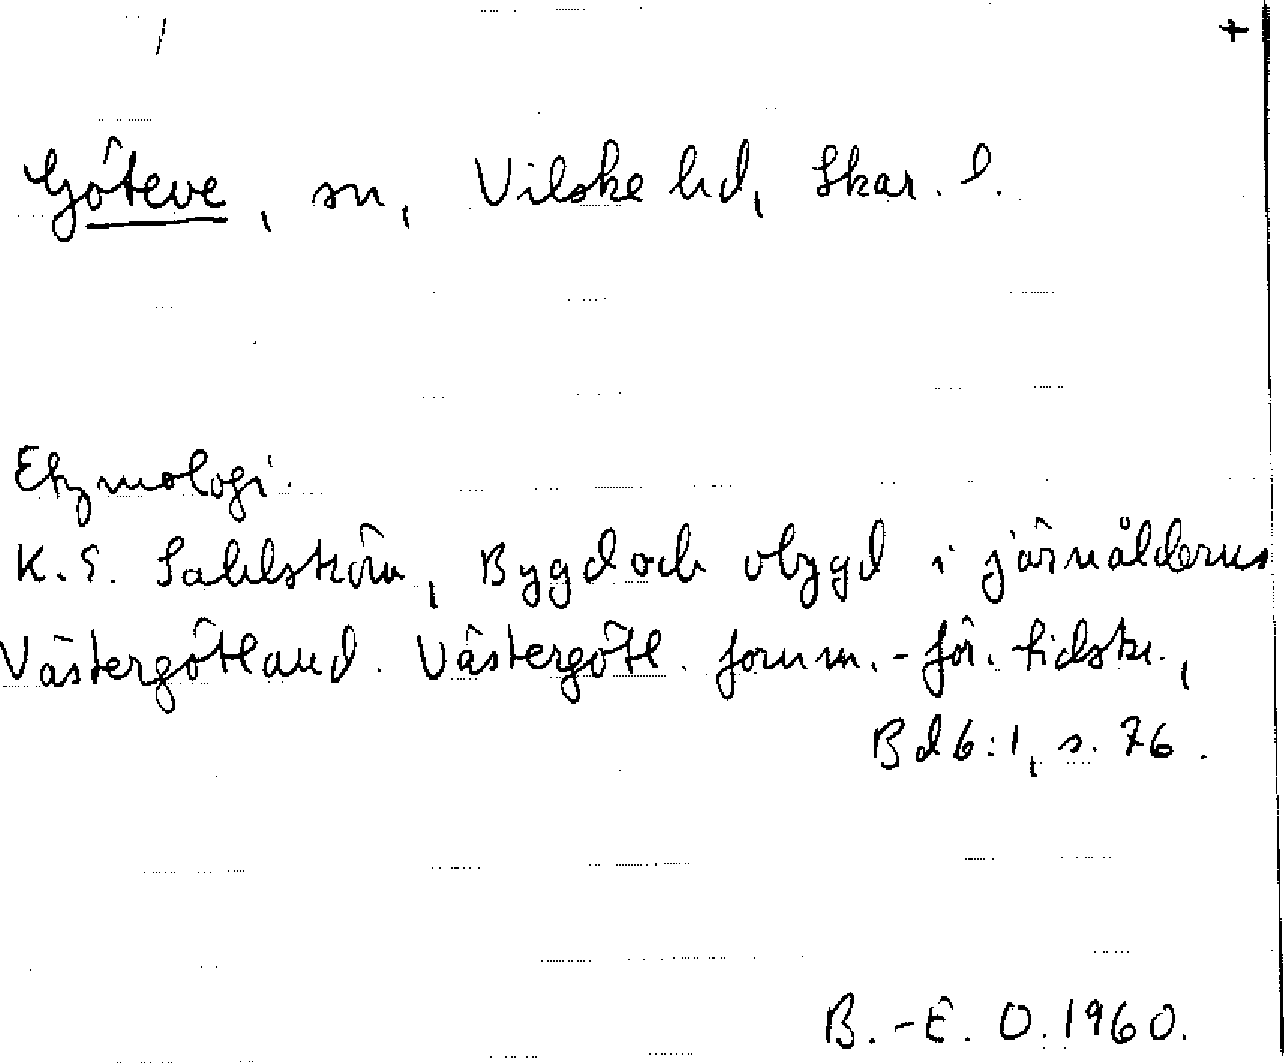 / +
Göteve, sn, Vilske hd, Skar. l.
Etymologi.
K.E. Sahlström, Bygd och obygd i järnålderns
Västergötland. Västergötl. fornm.-för. tidskr.,
Bd 6:1, s. 76.
B.-E. O. 1960.